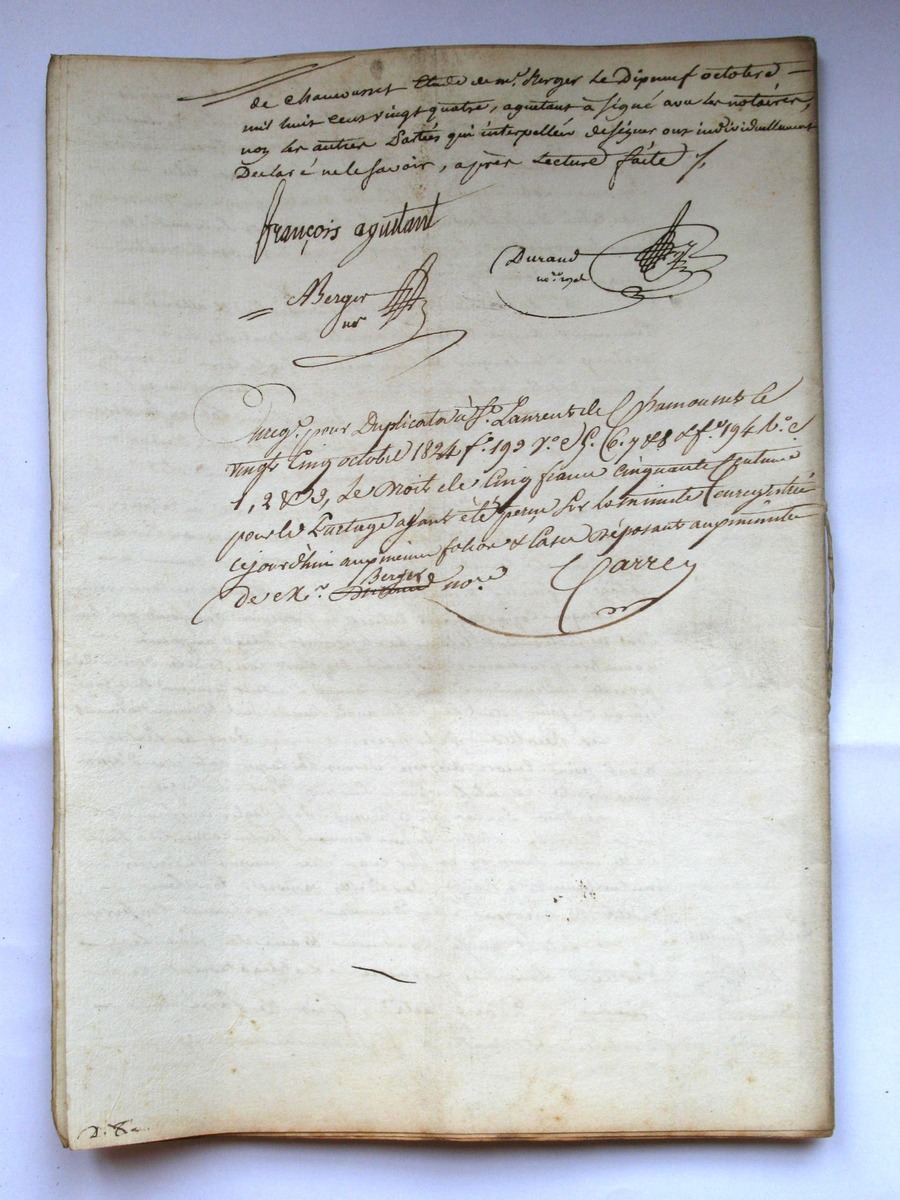 de Chamousset Etude de Mr. Berger le Dixneuf octobre
mil huit cent vingt quatre, aguetant à signé avec les notaires,
non les autres Parties qui interpellées de signer ont individuellement
Declaré ne le savoir, après Lecture faite
françois aguetant
Durand
Berger
nre
Enreg. pour Duplicata à St. Laurent de Chamousset le
vingt Cinq octobre 1824 fo. 193 Vo. C. 6. 7 & 8 & fo. 194 Ro. C
1, 2 & 3, Le Droit de Cinq francs Cinquante Centime
pour le Partage ayant été perçu sur la minute Enregistrée
Cejourd'hui aux mêmes folios & Cases Déposant aux minutes
de Me. Berger nore.
Carrey